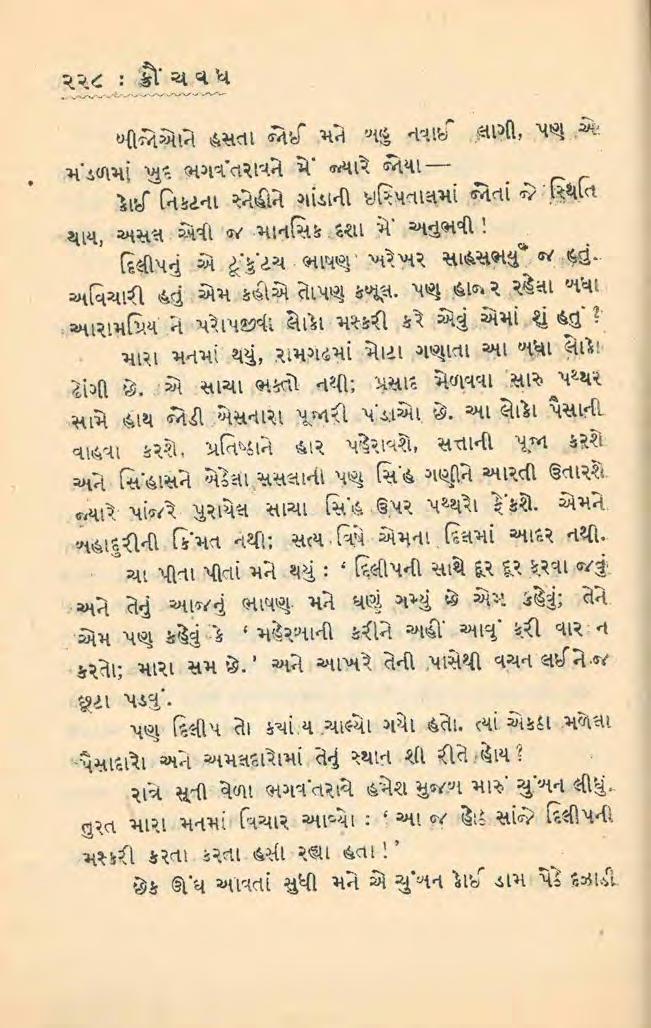 ૨૨૮ : ક્રૌંચવધ
બીજોઓને હસતા જોઈ મને બહુ નવાઈ લાગી, પણ એ
મંડળમાં ખુદ ભગવંતરાવને મેં જ્યારે જોયા—
કોઈ નિકટના સ્નેહીને ગાંડાની ઇસ્પિતાલમાં જોતાં જે સ્થિતિ
થાય, અસલ એવી જ માનસિક દશા મેં અનુભવી !
દિલીપનું એ ટૂંકુંટચ ભાષણ ખરેખર સાહસભર્યું જ હતું.
અવિચારી હતું એમ કહીએ તોપણ કબૂલ. પણ હાજર રહેલા બધા
આરામપ્રિય ને પરોપજીવી લોકો મશ્કરી કરે એવું એમાં શું હતું ?
મારા મનમાં થયું, રામગઢમાં મોટા ગણાતા આ બધા લોકો
ઢોંગી છે. એ સાચા ભક્તો નથી; પ્રસાદ મેળવવા સારુ પથ્થર
સામે હાથ જોડી બેસનારા પૂજારી પંડાઓ છે. આ લોકો પૈસાની
વાહવા કરશે, પ્રતિષ્ઠાને હાર પહેરાવશે, સત્તાની પૂજા કરશે
અને સિંહાસને બેઠેલા સસલાની પણ સિંહ ગણીને આરતી ઉતારશે
જ્યારે પાંજરે પુરાયેલ સાચા સિંહ ઉપર પથ્થરો ફેંકશે. એમને
બહાદુરીની કિંમત નથી; સત્ય વિષે એમના દિલમાં આદર નથી.
ચા પીતા પીતાં મને થયું : ‘ દિલીપની સાથે દૂર દૂર ફરવા જવું
અને તેનું આજનું ભાષણ મને ઘણું ગમ્યું છે એમ કહેવું; તેને
એમ પણ કહેવું કે ‘ મહેરબાની કરીને અહીં આવું ફરી વાર ન
કરતો; મારા સમ છે.’ અને આખરે તેની પાસેથી વચન લઈને જ
છૂટા પડવું.
પણ દિલીપ તો ક્યાંય ચાલ્યો ગયો હતો. ત્યાં એકઠા મળેલા
પૈસાદારો અને અમલદારોમાં તેનું સ્થાન શી રીતે હોય ?
રાત્રે સૂતી વેળા ભગવંતરાવે હમેશ મુજબ મારું ચુંબન લીધું.
તુરત મારા મનમાં વિચાર આવ્યો : ‘ આ જ હોઠ સાંજે દિલીપની
મશ્કરી કરતા કરતા હસી રહ્યા હતા ! ’
છેક ઊંઘ આવતાં સુધી મને એ ચુંબન કોઈ ડામ પેઠે દઝાડી